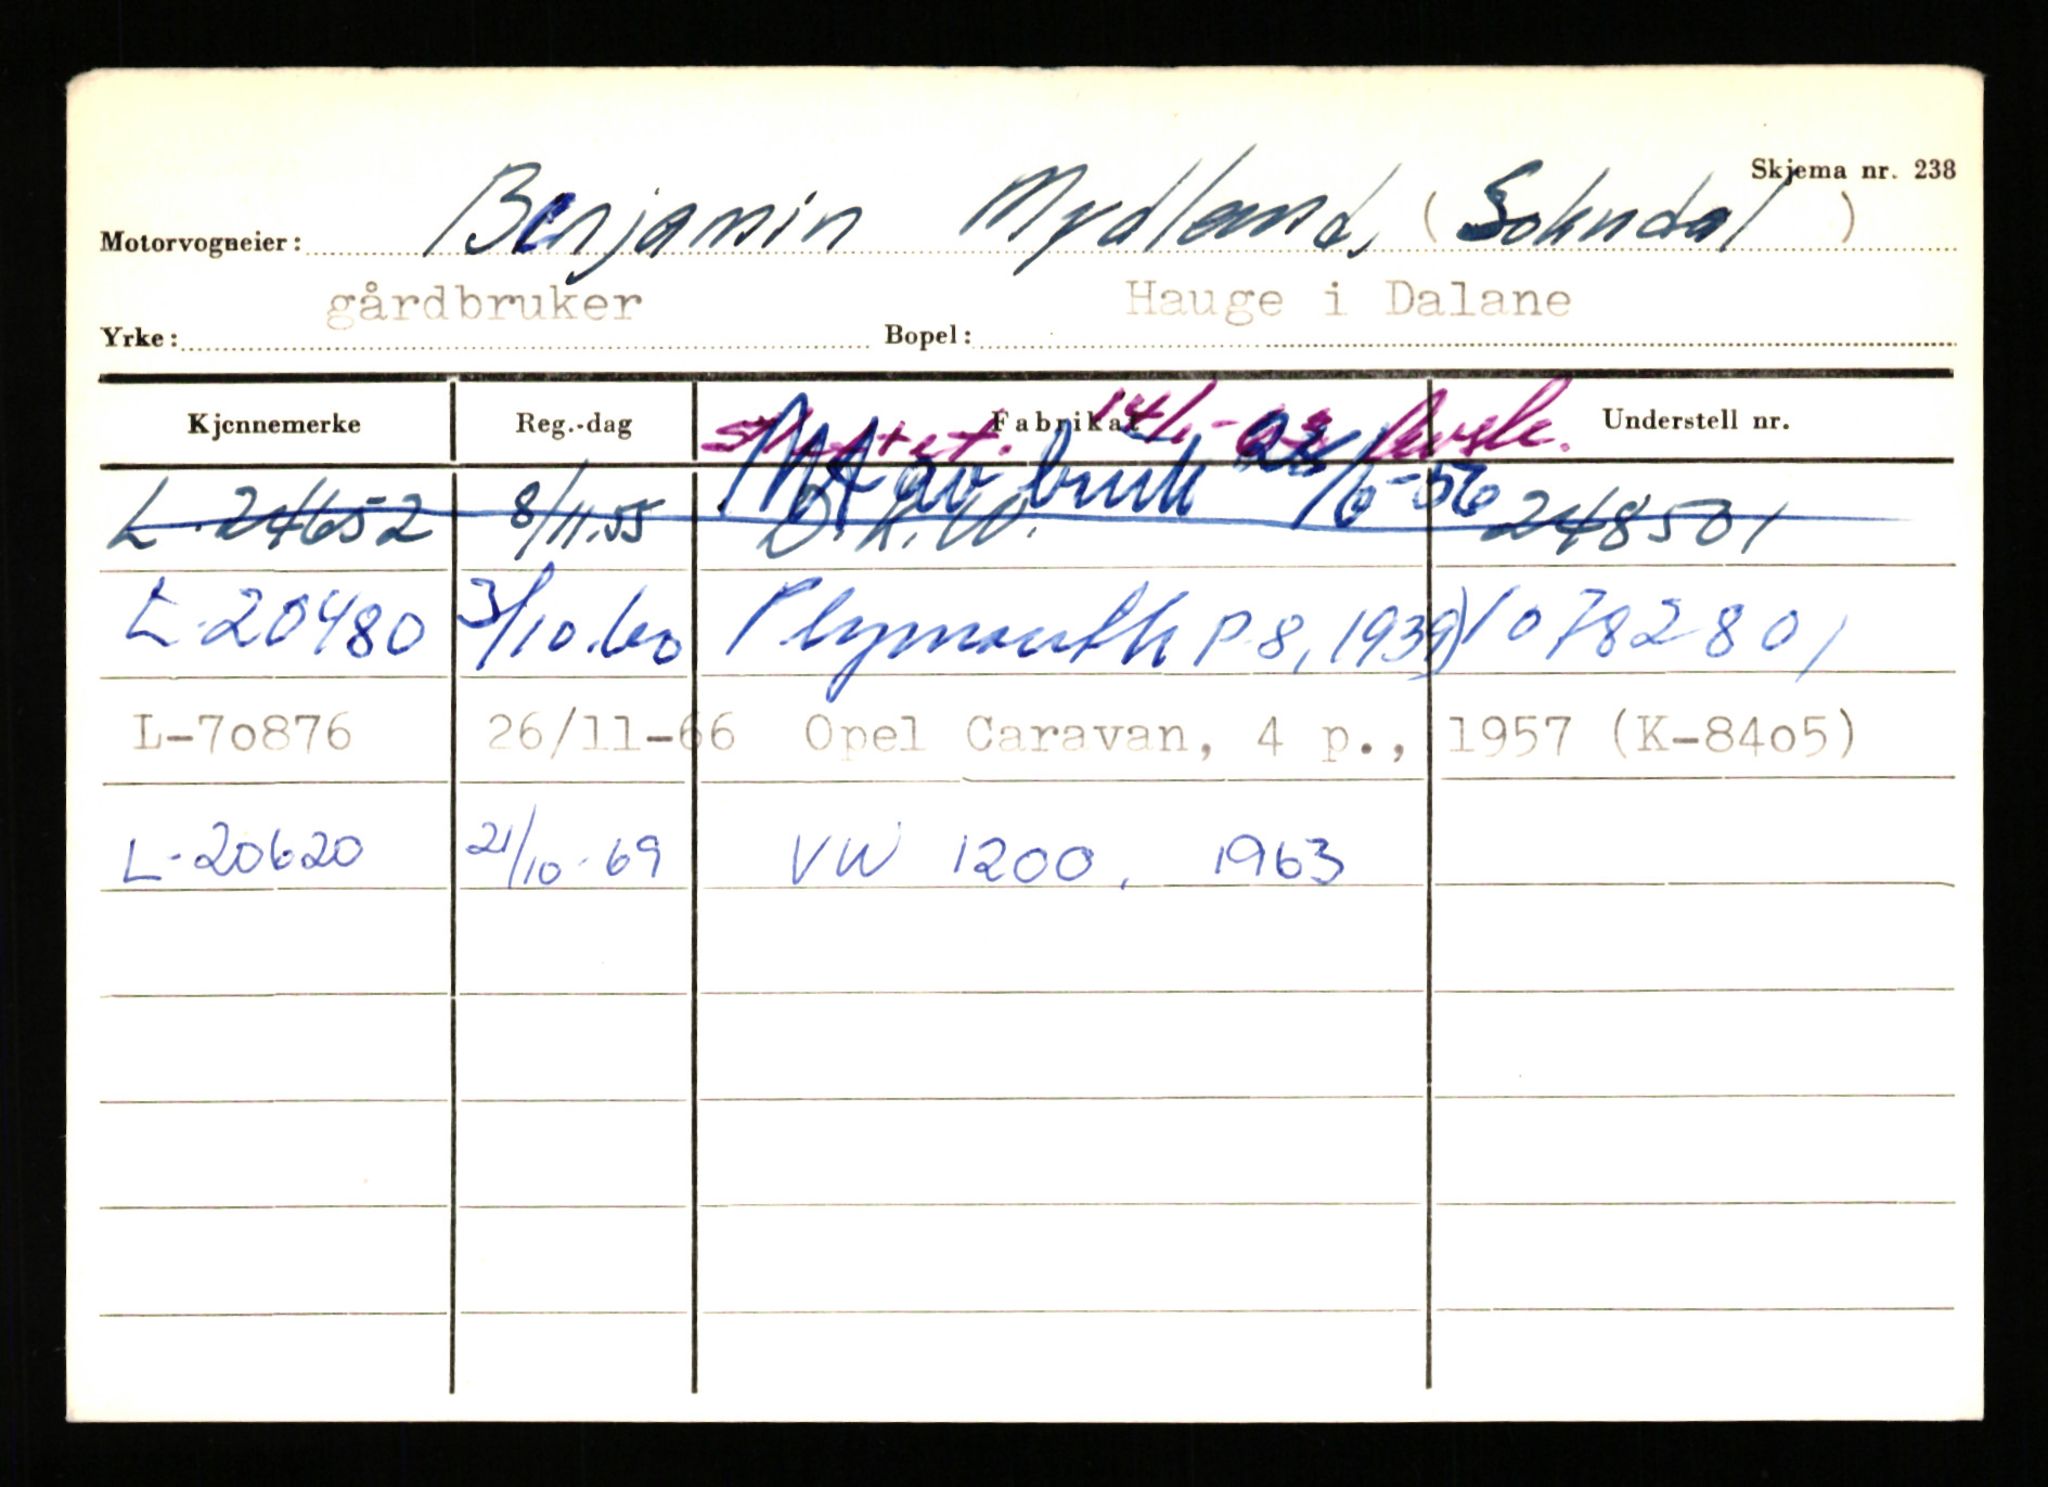 Skjema nr. 238
Motorvogneier: Benjamin Mydland, (Sokndal)
Yrke: gårdbruker Bopel: Hauge i Dalane
Kjennemerke Reg.-dag Fabrikat Understell nr.
14/1-63
av bruk 22/6-56
L-24652 8/11.55 D.K.W. 248501
L-20480 3/10.60 Plymouth P-8, 1939) 10782801
L-70876 26/11-66 Opel Caravan, 4 p., 1957 (K-84o5)
L-20620 21/10-69 VW 1200, 1963